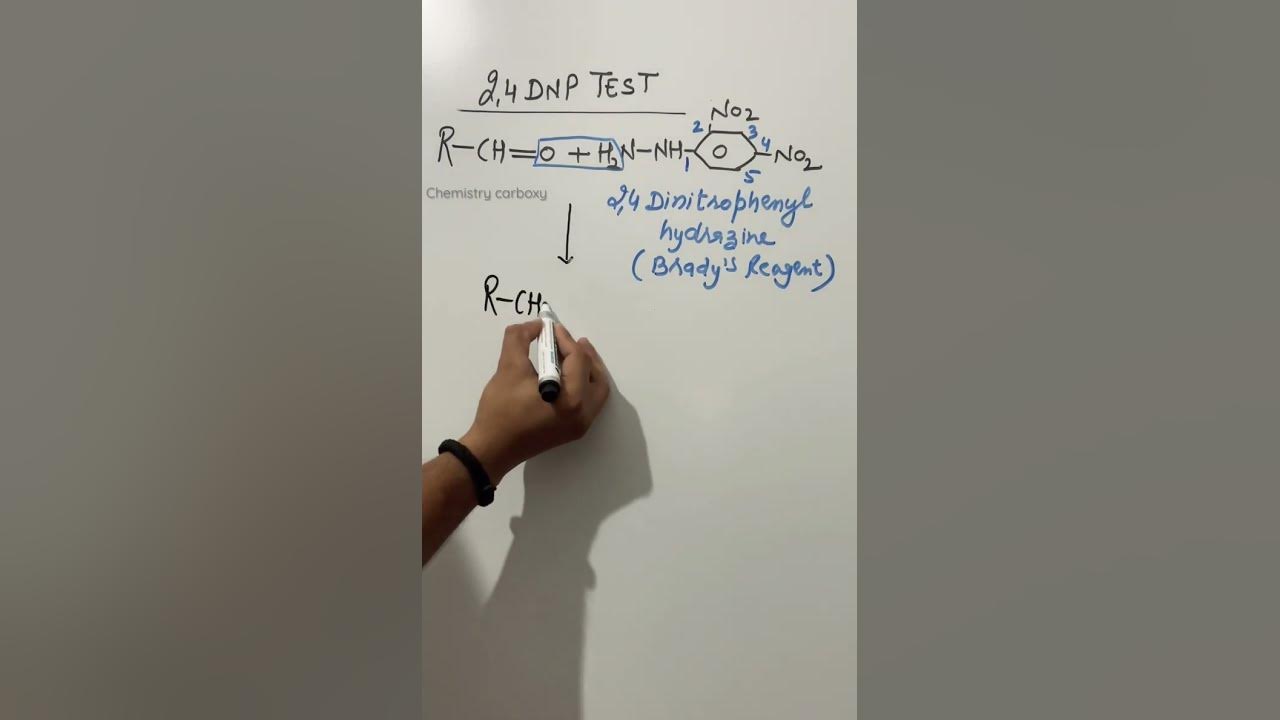 2,4 DNP TEST
NO2
2 3
R-CH=O + H2N-NH O 4 -NO2
1 5
Chemistry carboxy
2,4 Dinitrophenyl
hydrazine
(Brady's Reagent)
R-CH